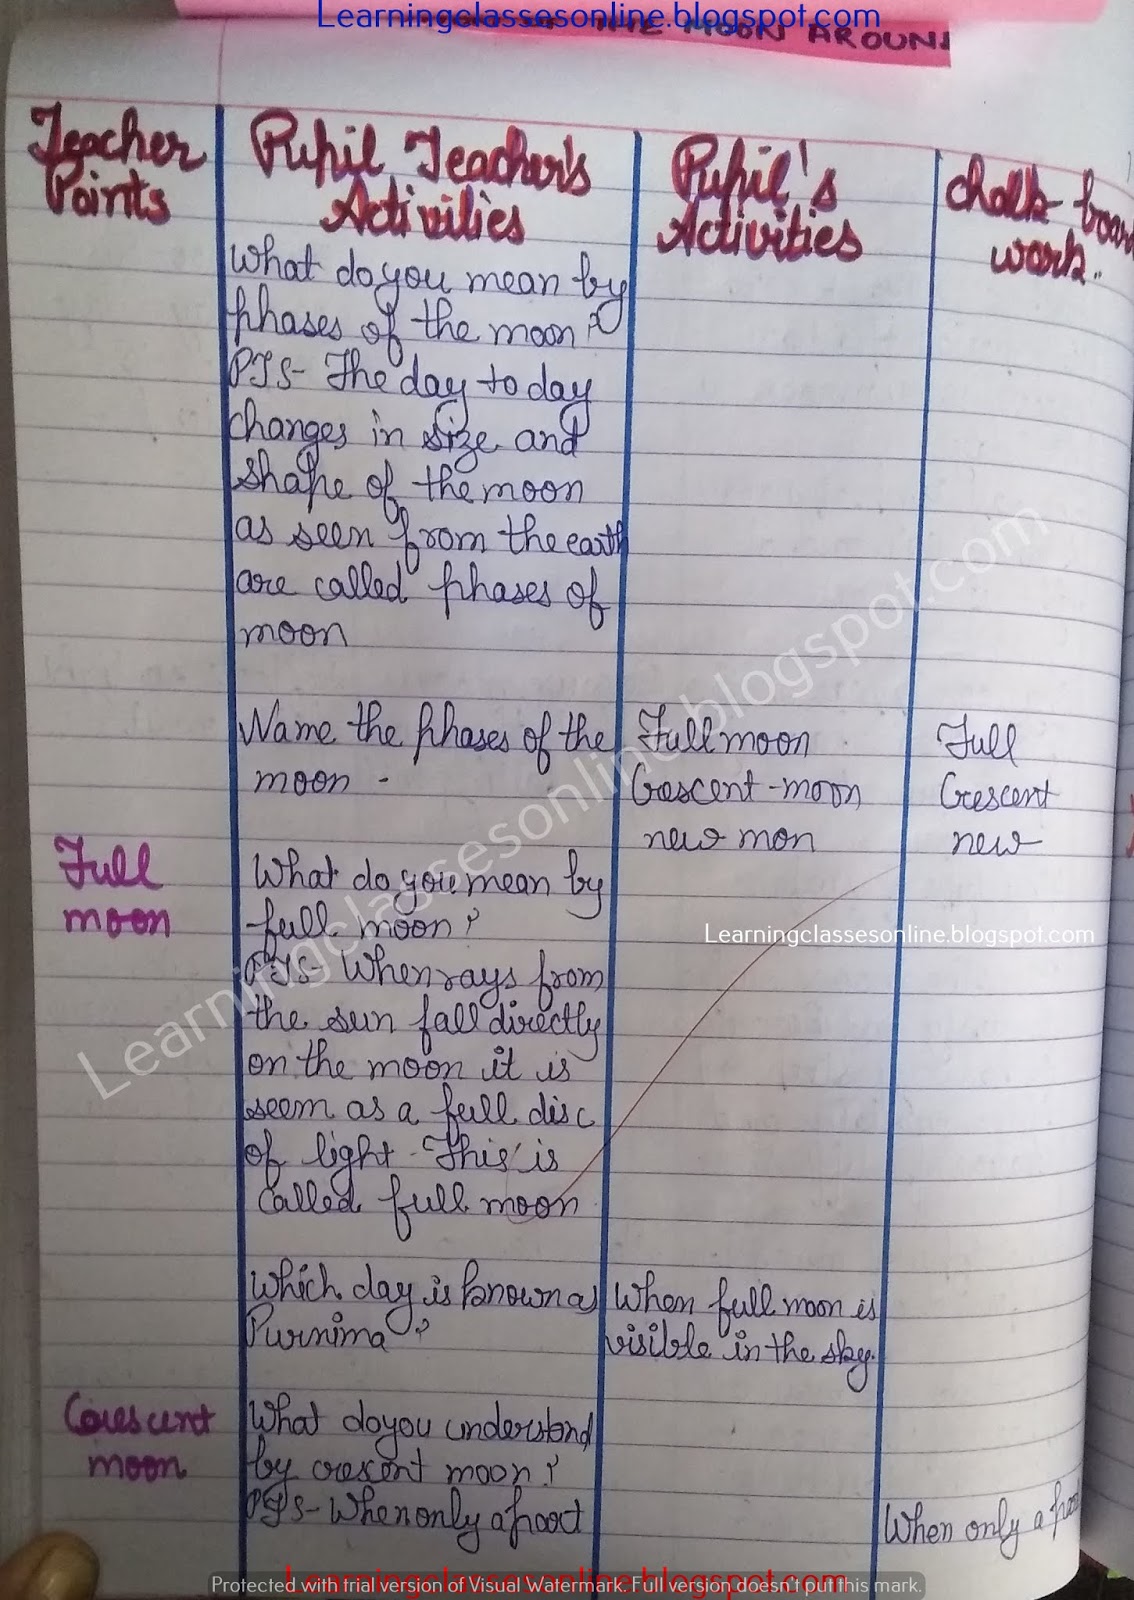 Learningclassesonline.blogspot.com
THE MOON AROUN
Teacher Points
Pupil Teacher's Activities
Pupil's Activities
Chalk board work..
What do you mean by
phases of the moon?
PTS- The day to day
changes in size and
shape of the moon
as seen from the earth
are called phases of
moon
Name the phases of the
moon -
Full moon
Crescent-moon
new mon
Full
Crescent
new
Full
moon
What do you mean by
full moon?
PTS- When rays from
the sun fall directly
on the moon it is
seem as a full disc
of light. This is
called full moon
Learningclassesonline.blogspot.com
Learningclassesonline.blogspot.com
Which day is known as
Purnima?
When full moon is
visible in the sky.
Crescent
moon
What do you understand
by crescent moon?
PTS- When only a part
When only a
Learningclassesonline.blogspot.com
Protected with trial version of Visual Watermark. Full version doesn't put this mark.